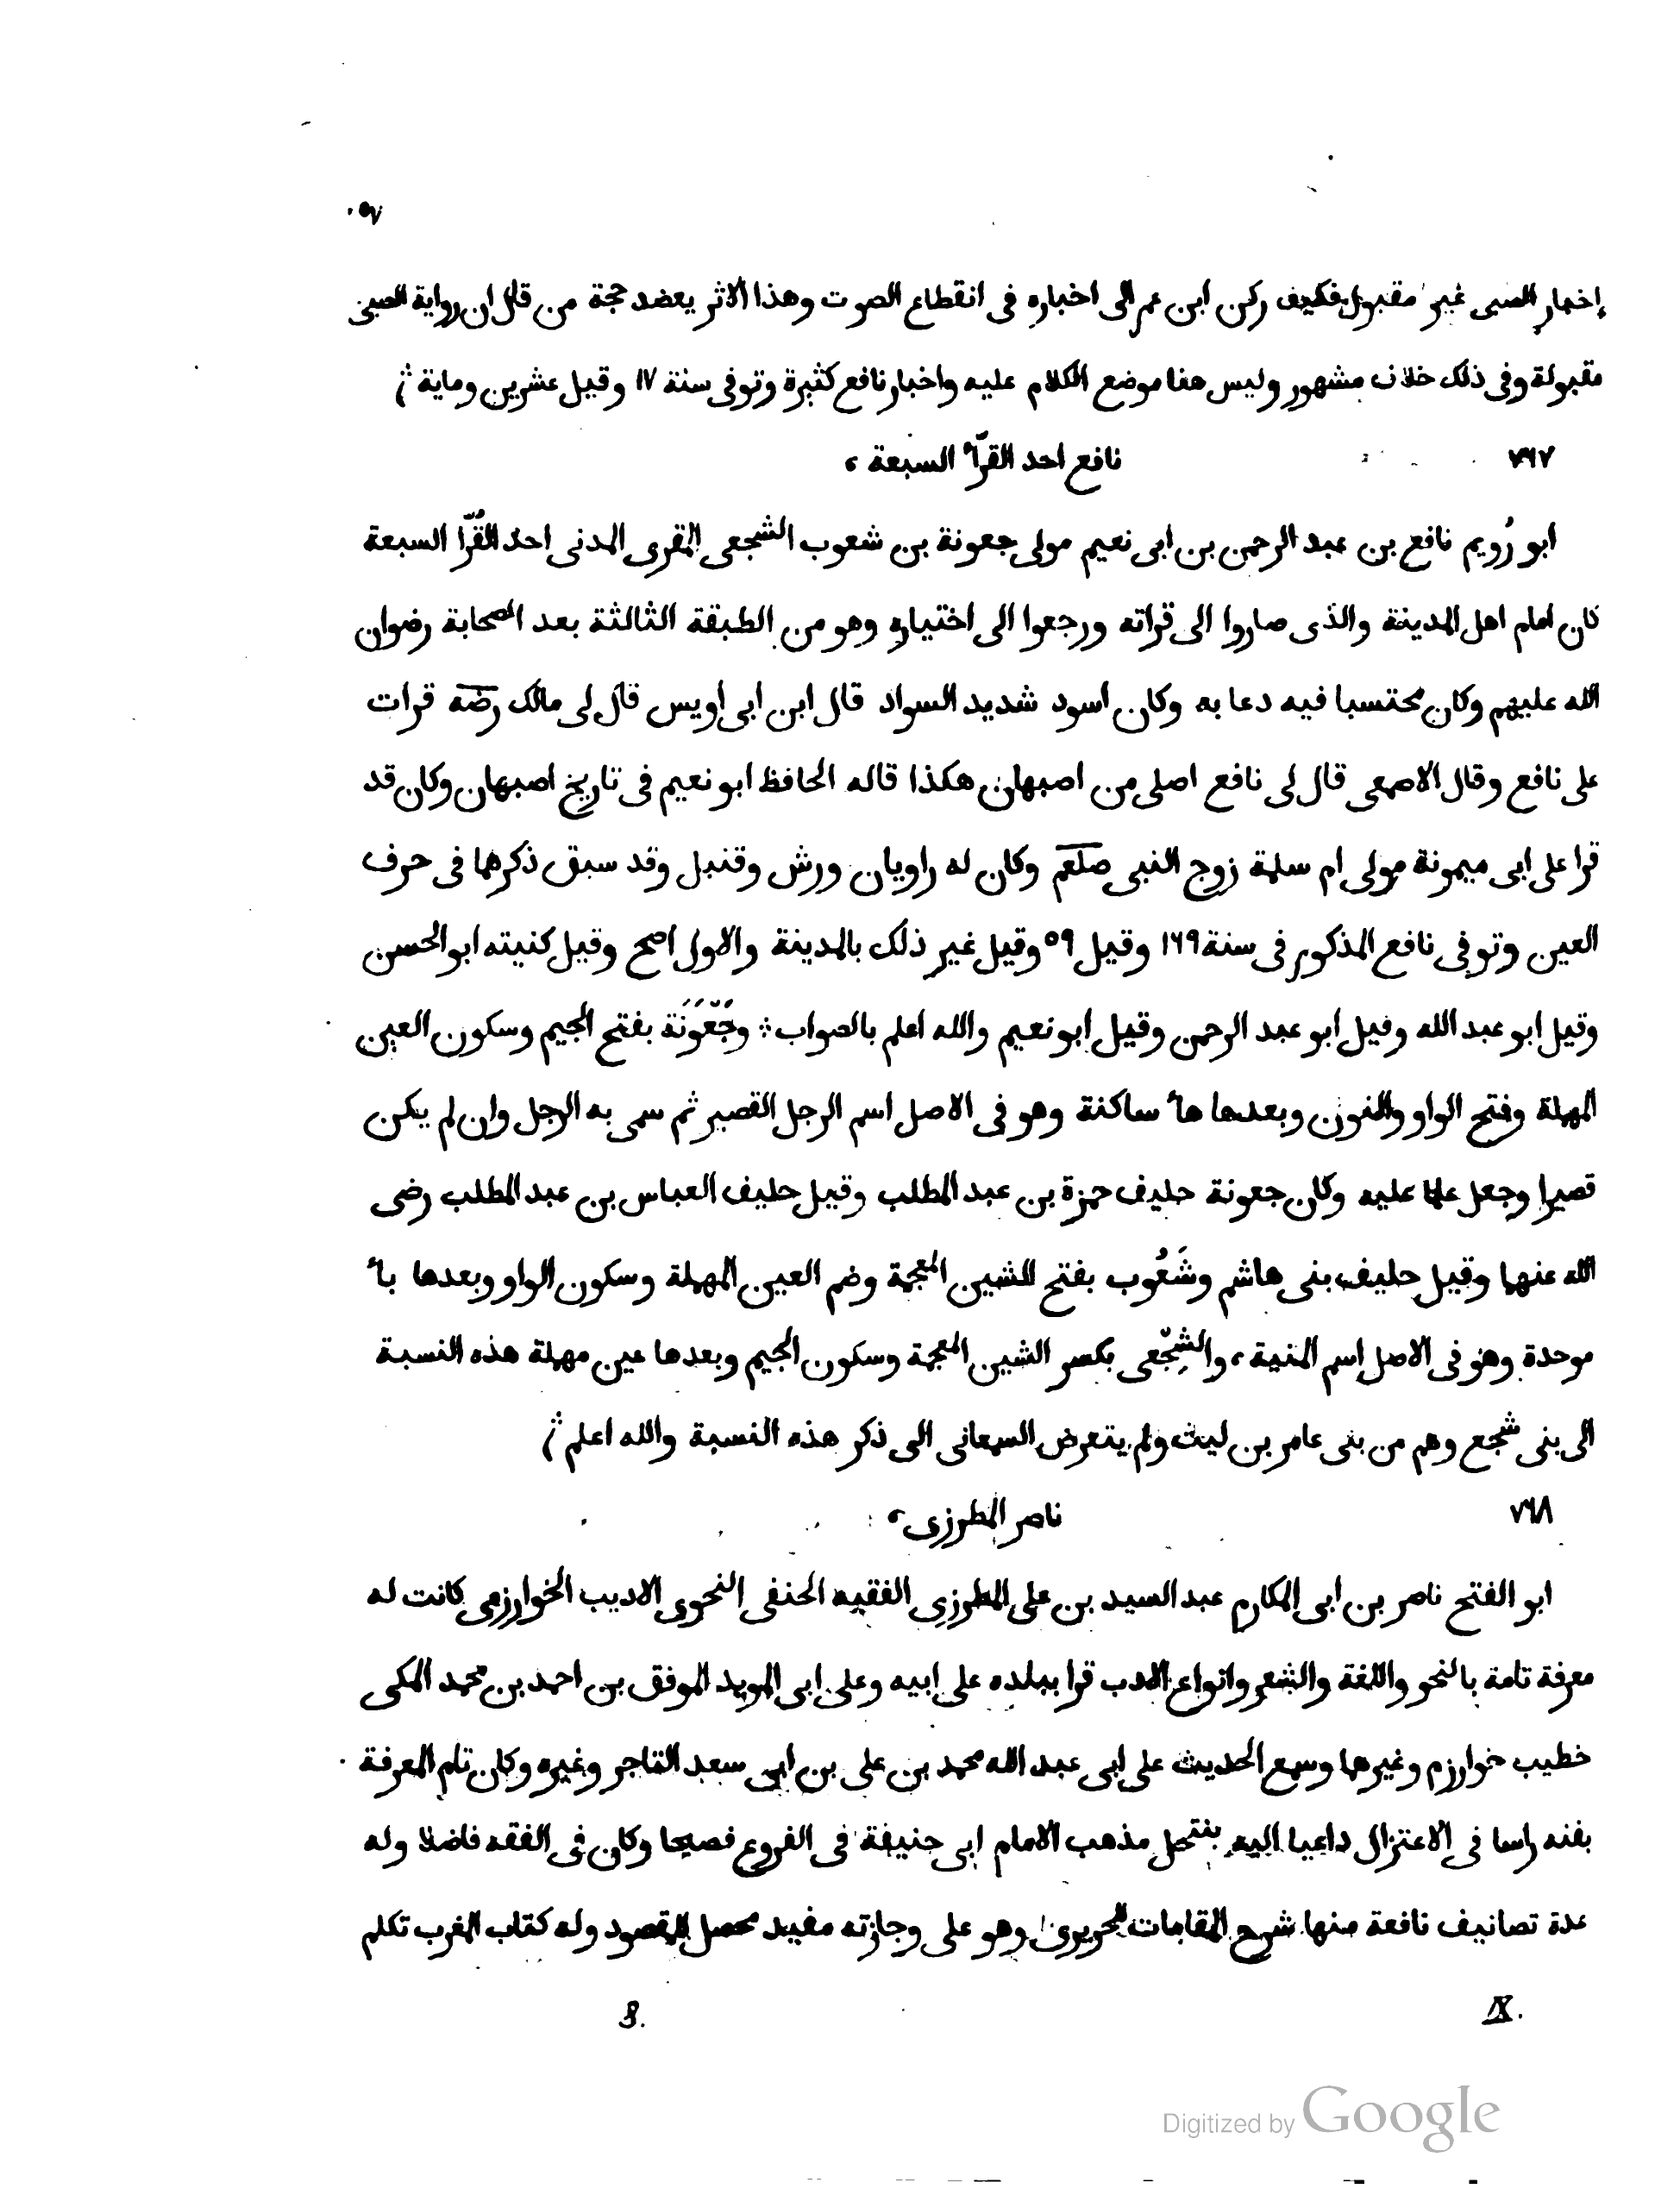 ٥٧
إخبار الصبى غير مقبول فكيف ركن ابن عمر الى اخباره فى انقطاع الصوت وهذا الاثر يعضد حجة من قال ان رواية الصبى
مقبولة وفى ذلك خلاف مشهور وليس هنا موضع الكلام عليه واخبار نافع كثيرة وتوفى سنة ١٧ وقيل عشرين وماية ؞
٧٦٧ نافع احد القرّاء السبعة ،
ابو رُويم نافع بن عبد الرحمن بن ابى نعيم مولى جعونة بن شعوب الشجعى المقرى المدنى احد القُرّا السبعة
كان امام اهل المدينة والذى صاروا الى قراته ورجعوا الى اختياره وهو من الطبقة الثالثة بعد الصحابة رضوان
الله عليهم وكان محتسبا فيه دعابه وكان اسود شديد السواد قال ابن ابى اويس قال لى مالك رضه قرات
على نافع وقال الاصمعى قال لى نافع اصلى من اصبهان هكذا قاله الحافظ ابو نعيم فى تاريخ اصبهان وكان قد
قرا على ابى ميمونة مولى ام سلمة زوج النبى صلعم وكان له راويان ورش وقنبل وقد سبق ذكرهما فى حرف
العين وتوفى نافع المذكور فى سنة ١٦٩ وقيل ٥٩ وقيل غير ذلك بالمدينة والاول اصح وقيل كنيته ابو الحسن
وقيل ابو عبد الله وقيل ابو عبد الرحمن وقيل ابو نعيم والله اعلم بالصواب ؞ وجَعْوَنَة بفتح الجيم وسكون العين
المهملة وفتح الواو والنون وبعدها هاء ساكنة وهو فى الاصل اسم الرجل القصير ثم سمى به الرجل وان لم يكن
قصيرا وجعل علما عليه وكان جعونة حليف حمزة بن عبد المطلب وقيل حليف العباس بن عبد المطلب رضى
الله عنهما وقيل حليف بنى هاشم وشَعُوب بفتح الشين المعجمة وضم العين المهملة وسكون الواو وبعدها باء
موحدة وهو فى الاصل اسم المنية ، والشِجْعى بكسر الشين المعجمة وسكون الجيم وبعدها عين مهملة هذه النسبة
الى بنى شجع وهم من بنى عامر بن ليث ولم يتعرض السمعانى الى ذكر هذه النسبة والله اعلم ؞
٧٦٨ ناصر المطرزى ،
ابو الفتح ناصر بن ابى المكارم عبد السيد بن على المطرزى الفقيه الحنفى النحوى الاديب الخوارزمى كانت له
معرفة تامة بالنحو واللغة والشعر وانواع الادب قرا ببلده على ابيه وعلى ابى المويد الموفق بن احمد بن محمد المكى
خطيب خوارزم وغيرهما وسمع الحديث على ابى عبد الله محمد بن على بن ابى سعد التاجر وغيره وكان تام المعرفة
بفنه راسا فى الاعتزال داعيا اليه ينتحل مذهب الامام ابى حنيفة فى الفروع فصيحا وكان فى الفقه فاضلا وله
عدة تصانيف نافعة منها شرح المقامات للحريرى وهو على وجازته مفيد محصل للمقصود وله كتاب المغرب تكلم
IX. 8.
Digitized by Google